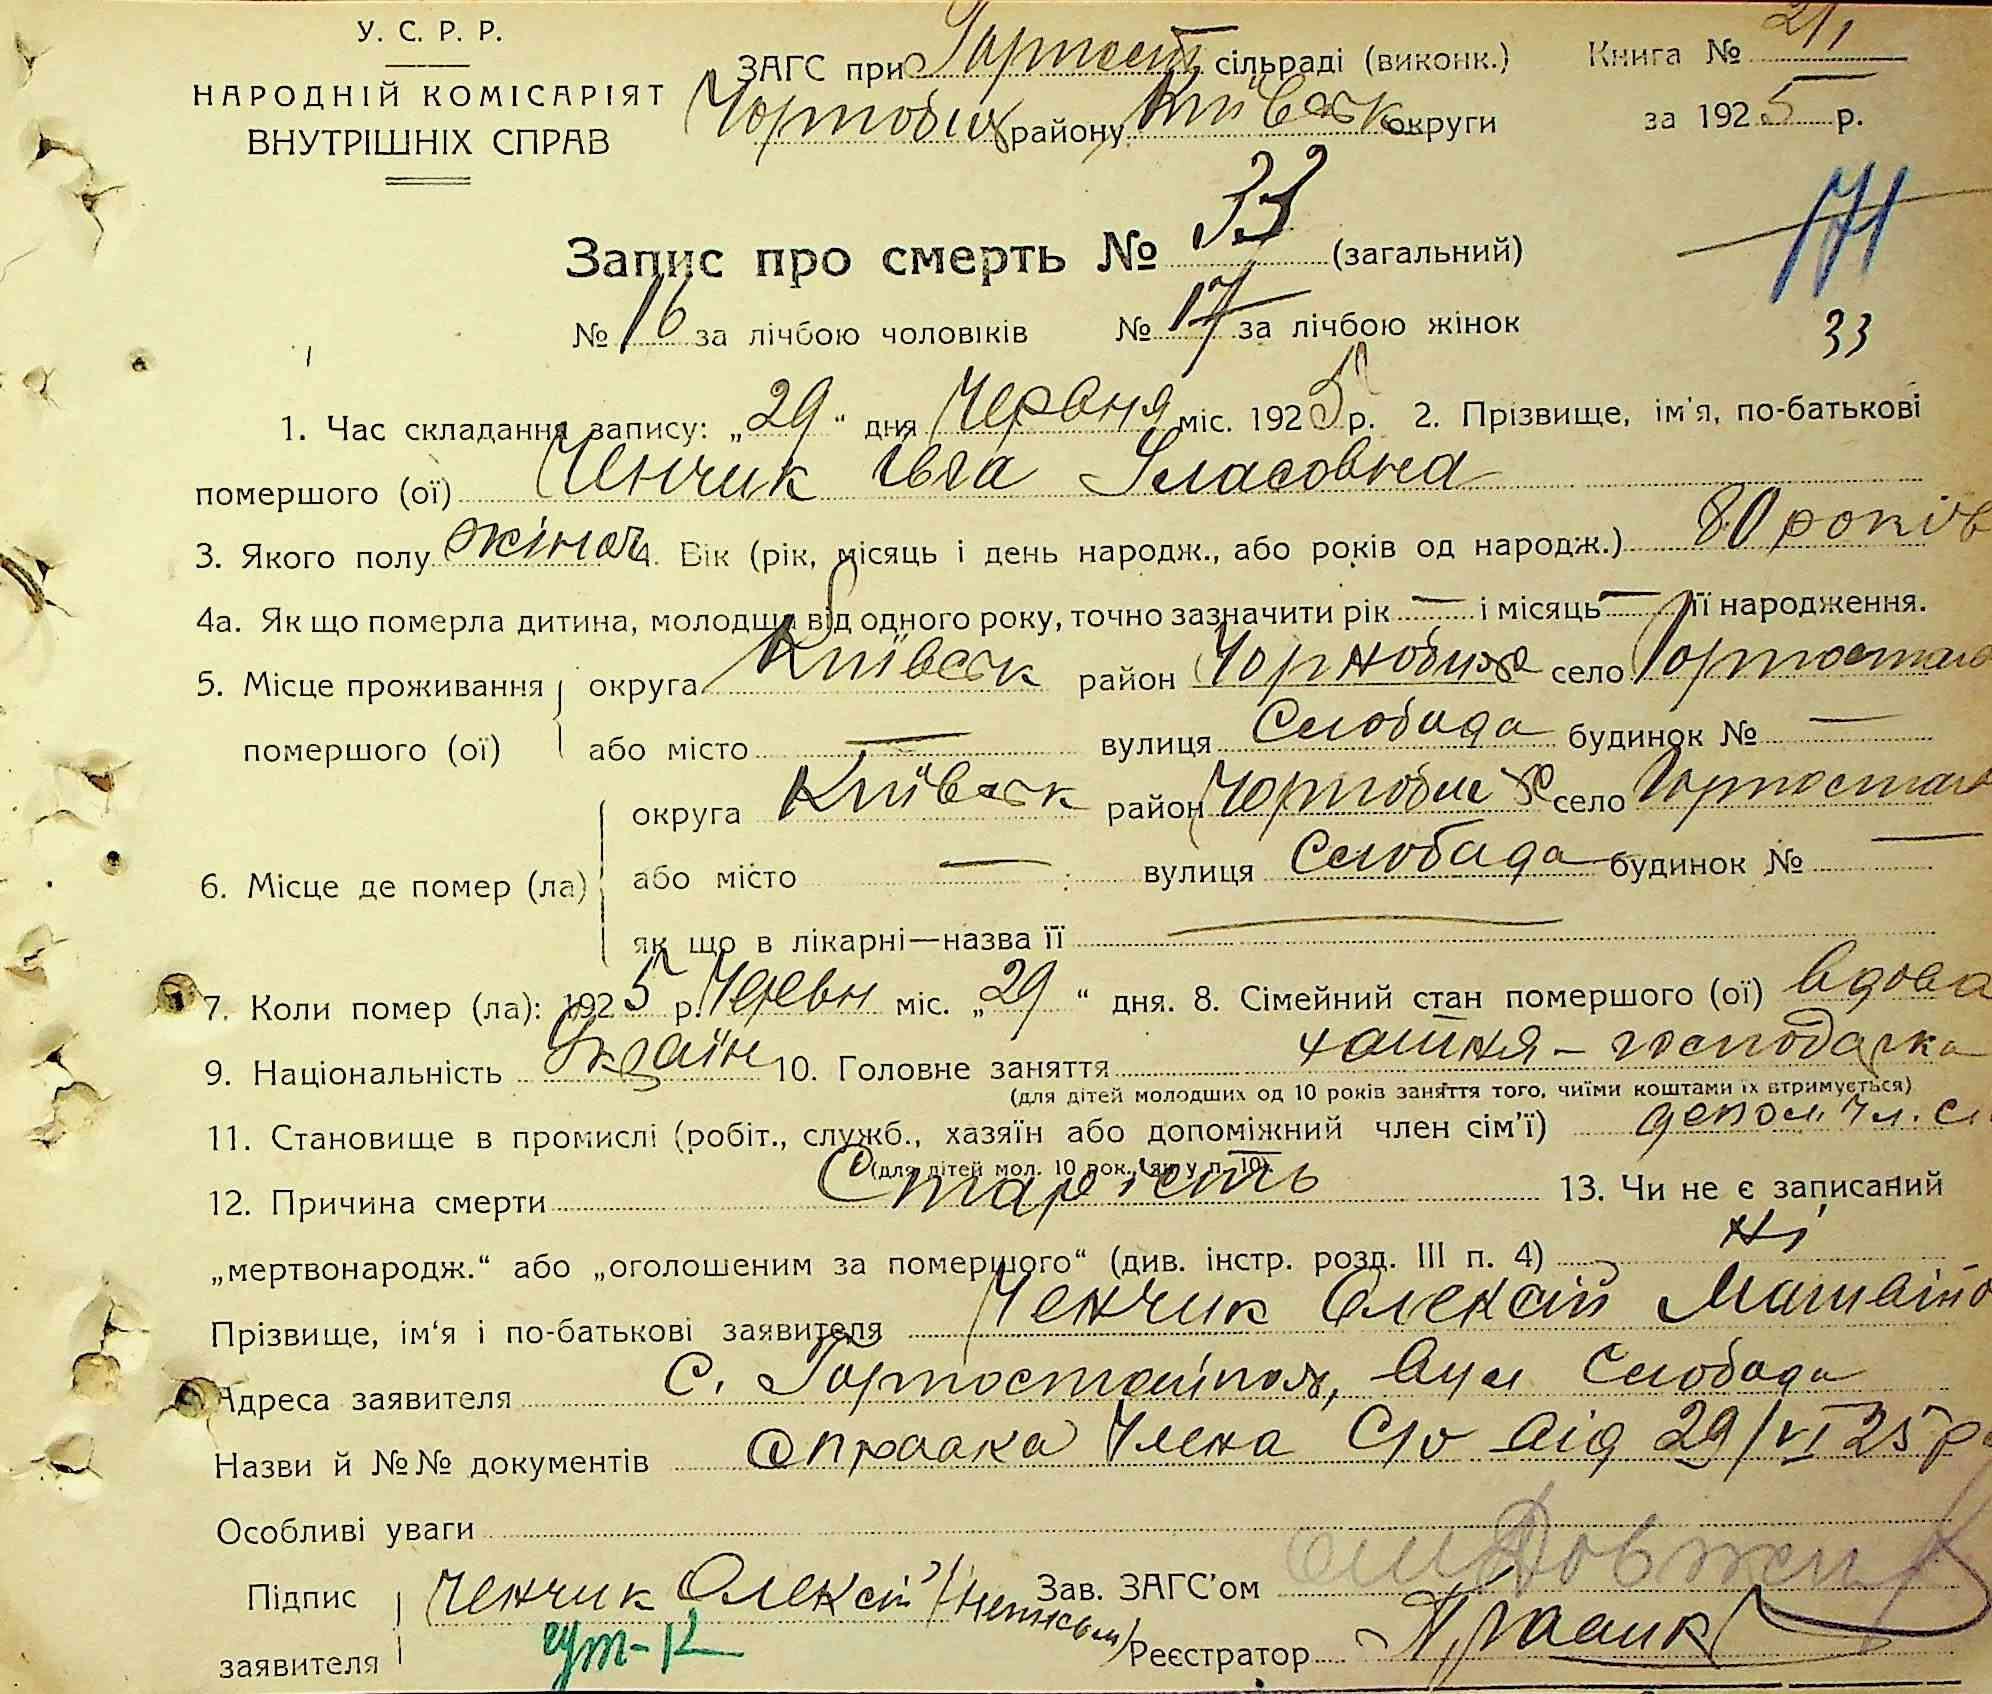 У. С. Р. Р.
НАРОДНІЙ КОМІСАРІЯТ
ВНУТРІШНІХ СПРАВ
ЗАГС при Горност сільраді (виконк.) Книга № 2/1
Чорнобил району Київськ округи за 1925 р.
Запис про смерть № 33 (загальний)
171
№ 16 за лічбою чоловіків № 17 за лічбою жінок
33
1. Час складання запису: „29“ дня Червня міс. 1925 р. 2. Прізвище, ім'я, по-батькові
помершого (ої) Ченчик Івга Власовна
3. Якого полу жіноч 4. Вік (рік, місяць і день народж., або років од народж.) 80 років
4а. Як що померла дитина, молодша від одного року, точно зазначити рік — і місяць — її народження.
5. Місце проживання округа Київськ район Чорнобил село Горностай
помершого (ої) або місто — вулиця Слобода будинок № —
округа Київськ район Чорнобил село Горностай
6. Місце де помер (ла) або місто — вулиця Слобода будинок № —
як що в лікарні—назва її —
7. Коли помер (ла): 1925 р. Червн міс. „29“ дня. 8. Сімейний стан помершого (ої) вдова
9. Національність Україн 10. Головне заняття хатня - господарка
(для дітей молодших од 10 років заняття того, чиїми коштами їх втримується)
11. Становище в промислі (робіт., служб., хазяїн або допоміжний член сім'ї) допом. чл. сі
(для дітей мол. 10 рок., як у п. 10).
12. Причина смерти Старість 13. Чи не є записаний
„мертвонародж.“ або „оголошеним за помершого“ (див. інстр. розд. III п. 4) Ні
Прізвище, ім'я і по-батькові заявителя Ченчик Олексій Матвійо
Адреса заявителя С. Горностайполь, вул Слобода
Назви й №№ документів Справка Члена С/р від 29/VI 25 р
Особливі уваги
Підпис Ченчик Олексій /неписьм/ Зав. ЗАГС'ом
заявителя Реєстратор